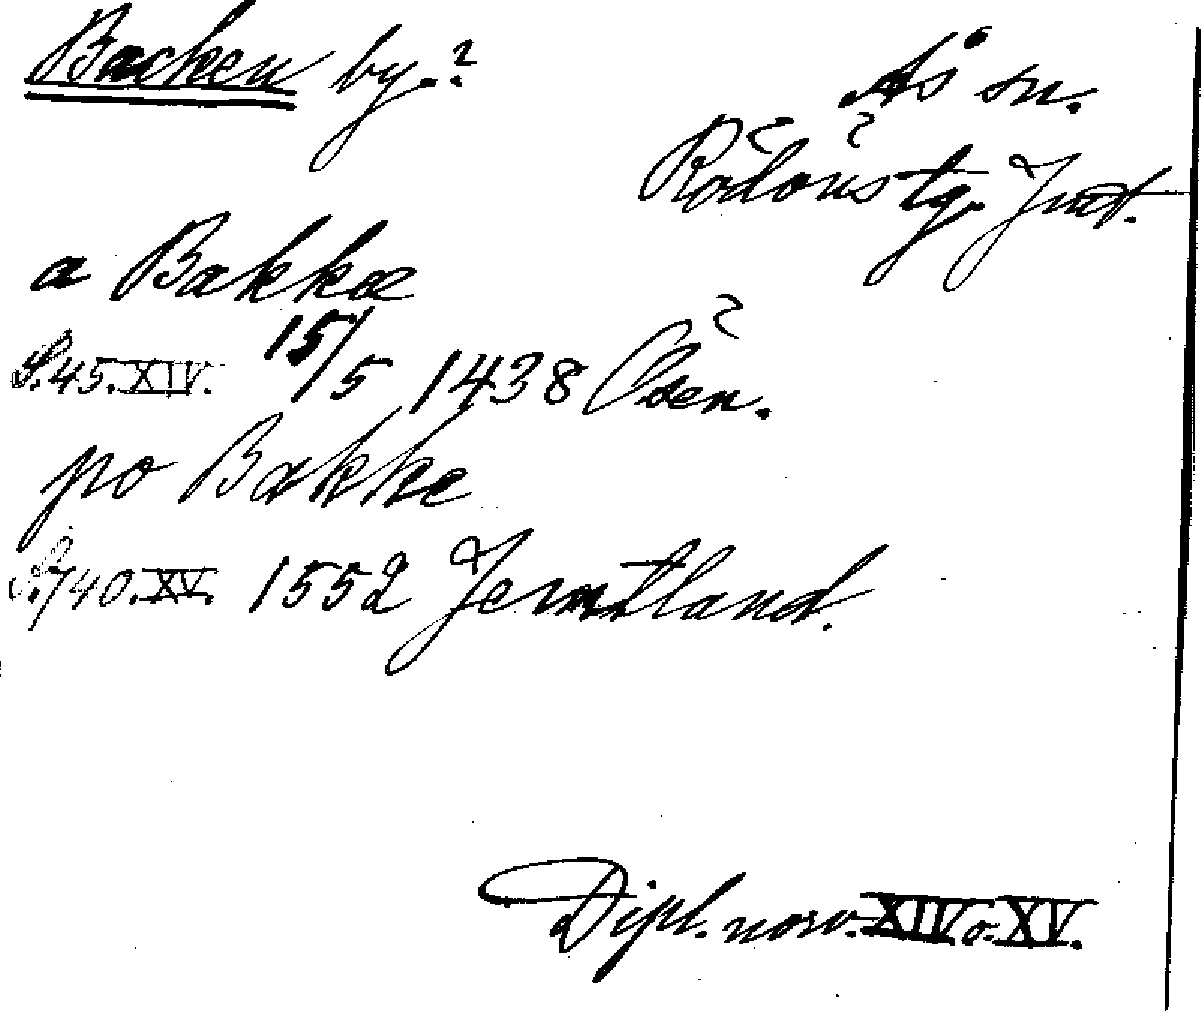 Backen by.?
Ås sn.
Rödöns tg. Jmt.
a Bakkæ
S. 45. XIV. 15/5 1438 Ösen.
po Bakke
S. 740. XV. 1552 Jemtland.
Dipl. norv. XIV o. XV.